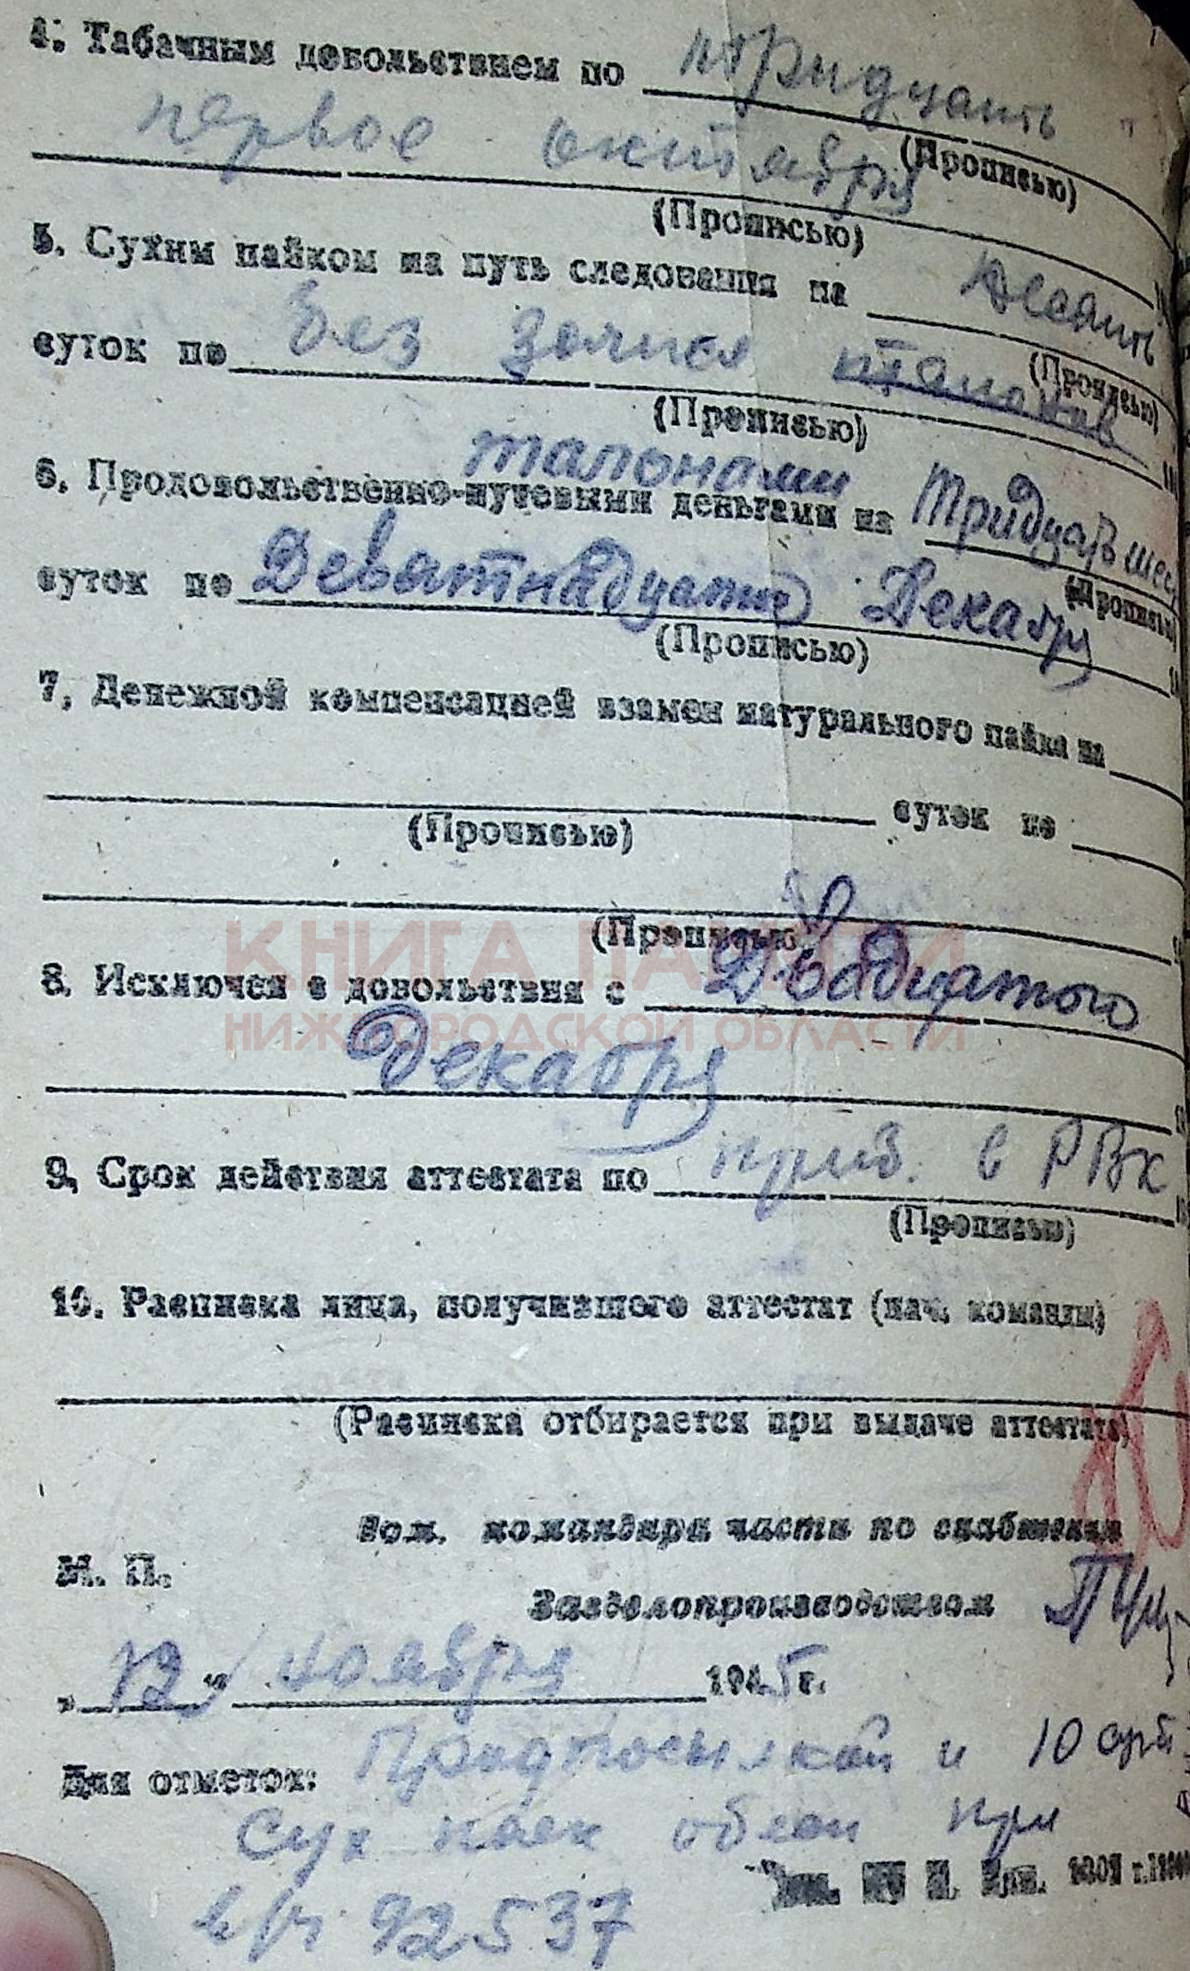 4. Табачным довольствием по тридцать
(Прописью)
первое октября
(Прописью)
5. Сухим пайком на путь следования на десять
(Прописью)
суток по без талонов
(Прописью)
талонами
6. Продовольственно-путевыми деньгами на Тридцать шес
(Прописью)
суток по Девятнадцатое Декабря
(Прописью)
7. Денежной компенсацией взамен натурального пайка на
суток по
(Прописью)
(Прописью)
КНИГА ПАМЯТИ
8. Исключен с довольствия с Двадцатого
НИЖЕГОРОДСКОЙ ОБЛАСТИ
Декабря
9. Срок действия аттестата по приб. в РВК
(Прописью)
10. Расписка лица, получившего аттестат (нач. команды)
(Расписка отбирается при выдаче аттестата)
Пом. командира части по снабжению
М. П.
Завделопроизводством
„12" ноября 1945 г.
Для отметок: Прод посылкой и 10 сут
Сух паек при
в/ч 92537